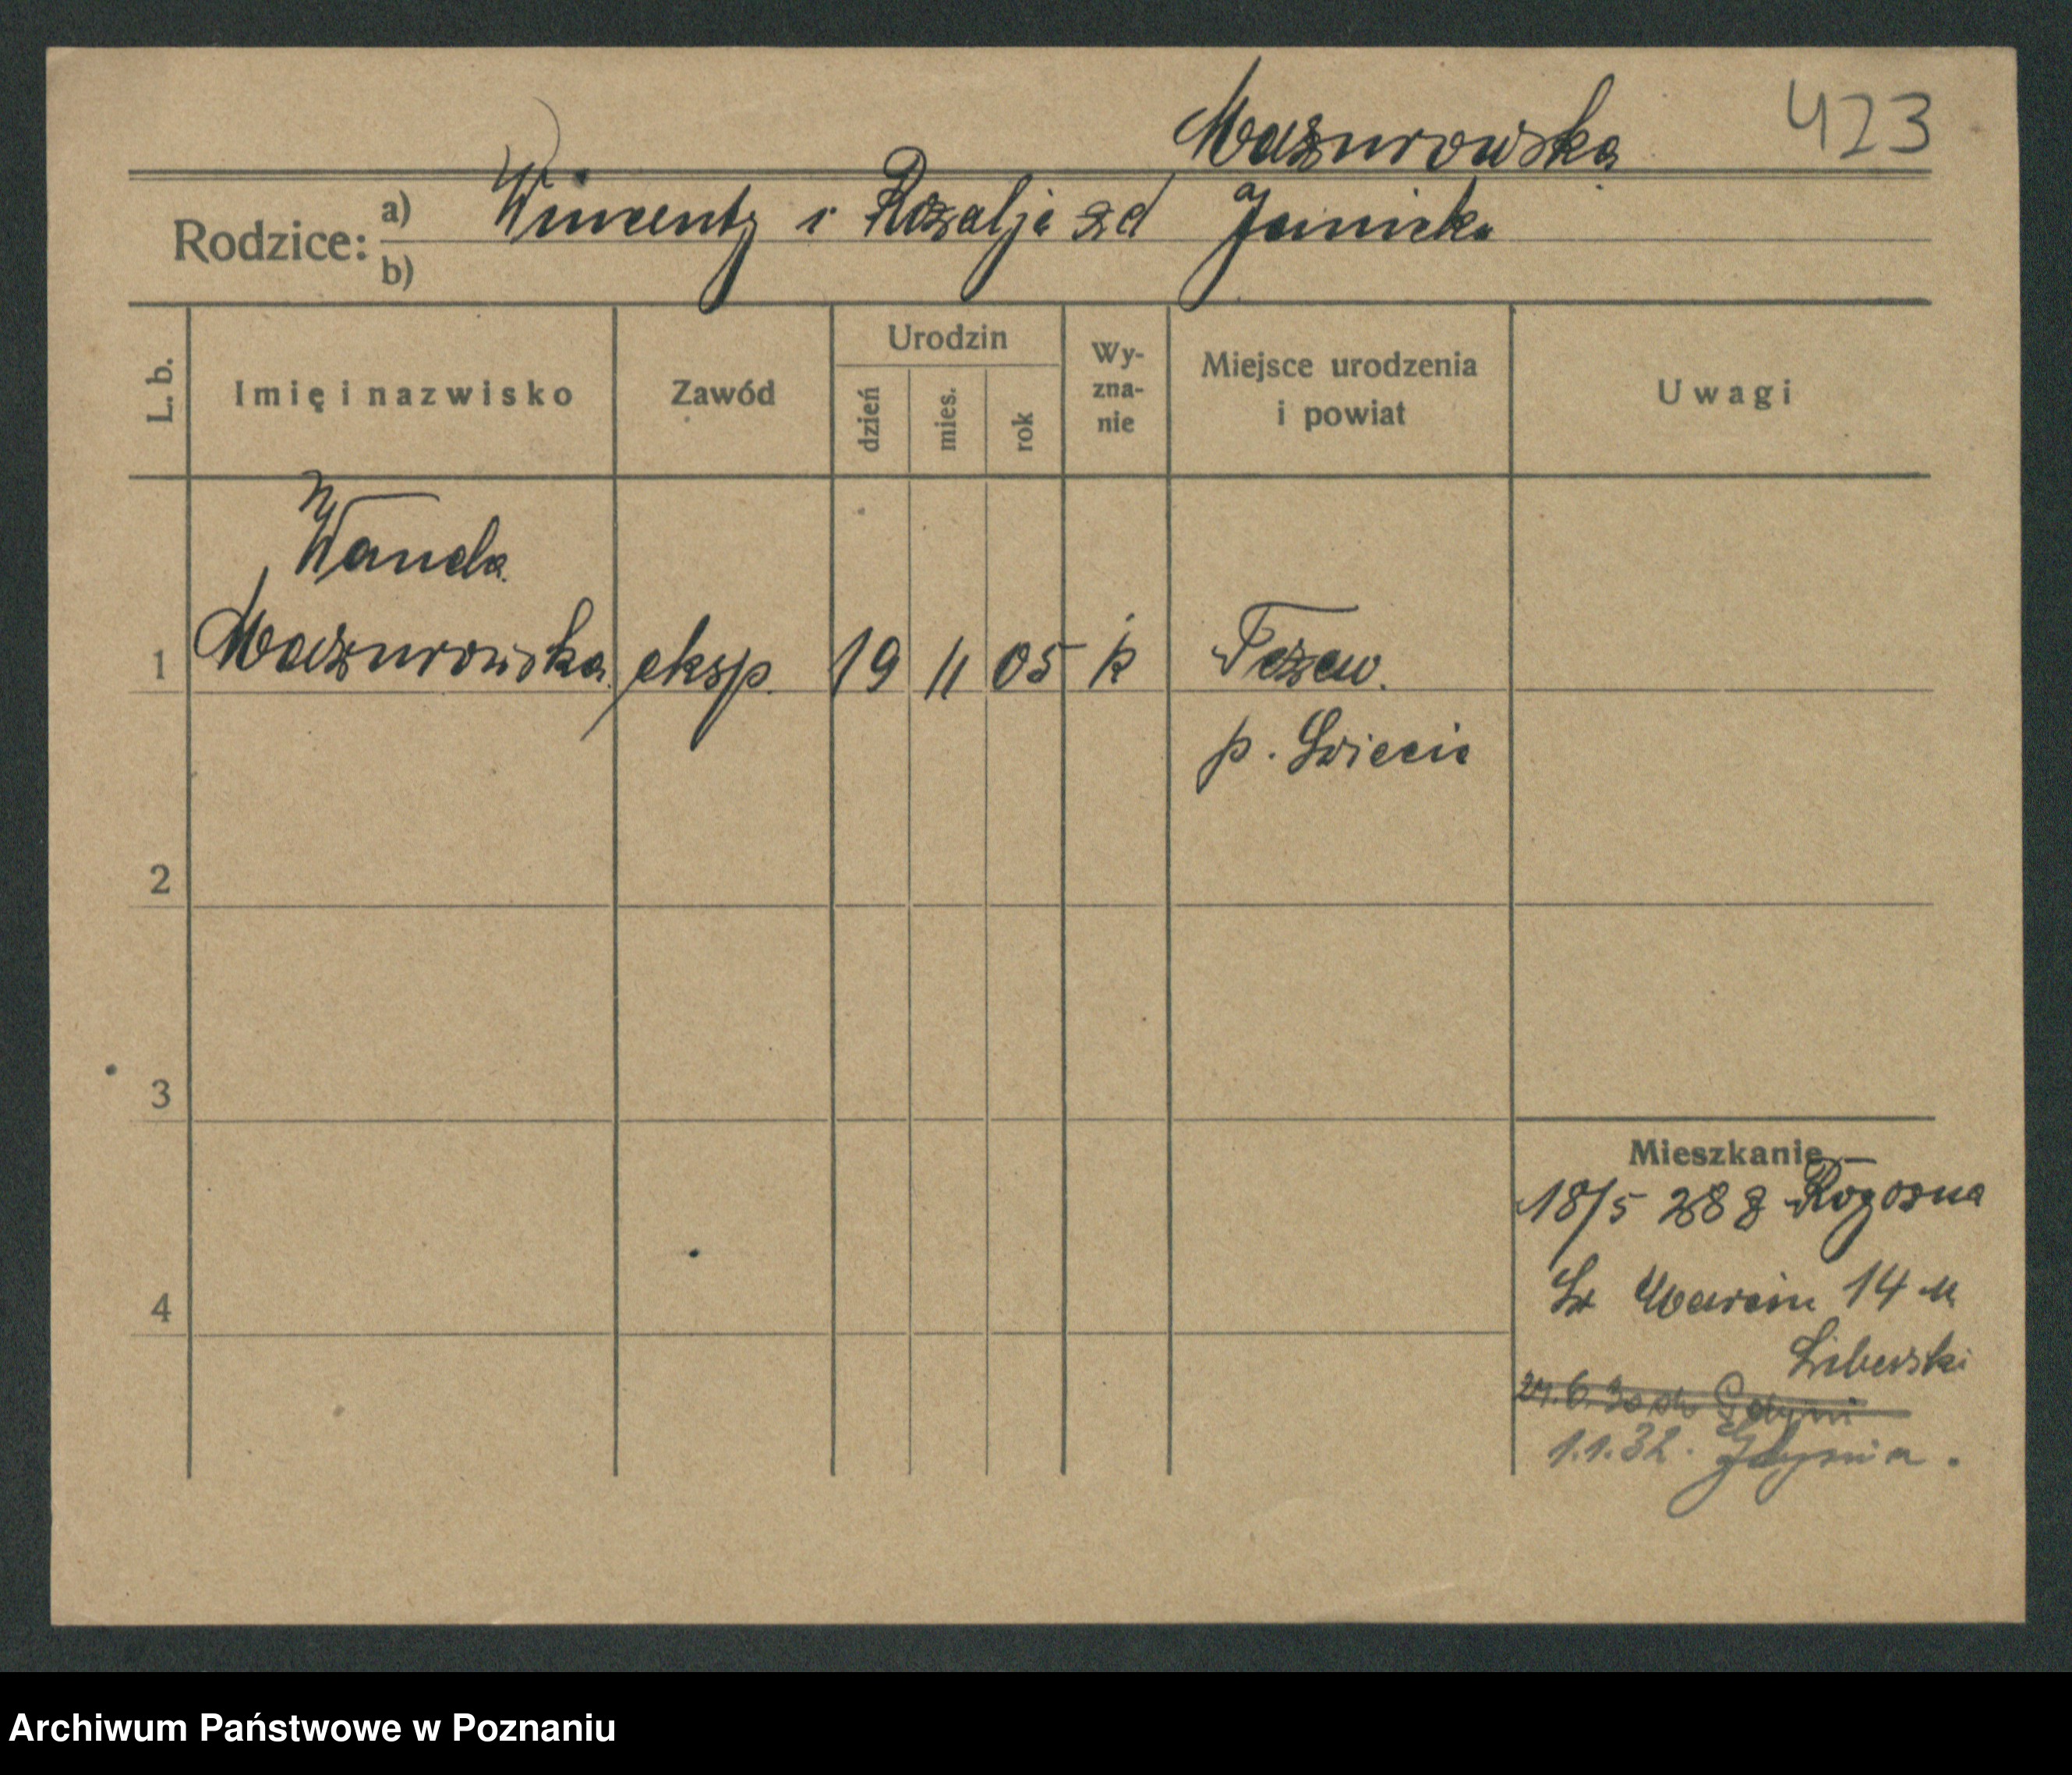 Mazurowska 423
Rodzice: a) Wincenty i Rozalja zd Janicka
b)
L. b. Imię i nazwisko Zawód Urodzin dzień mies. rok Wyzna-nie Miejsce urodzenia i powiat Uwagi
Wanda
1 Mazurowska eksp. 19 11 05 k Tczew.
p. Świecie
2
3
Mieszkanie
18/5 28 z Rogozna
Św Marcin 14 u
4
Liberski
1.1.32. Gdynia.
Archiwum Państwowe w Poznaniu